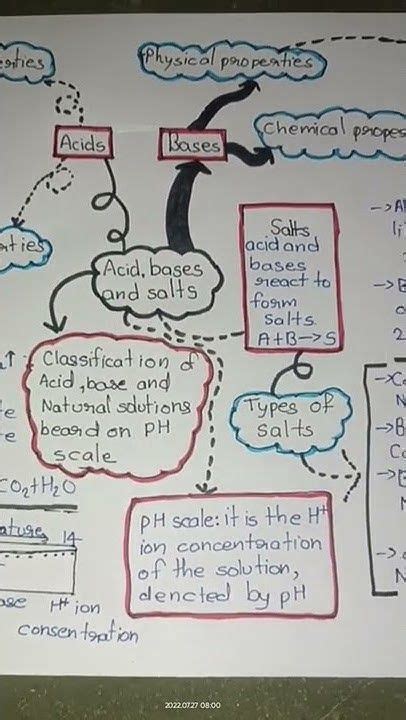 erties
Physical properties
Acids
Bases
Chemical propes
ties
Acid, bases
and salts
Salts
acid and
bases
react to
form
salts.
A+B→S
Classification of
Acid, base and
Natural solutions
beard on pH
scale
Types of
salts
CO₂+H₂O
14
pH scale: it is the H⁺
ion concentration
of the solution,
dencted by pH
ase H⁺ ion
consentration
2022.07.27 08:00